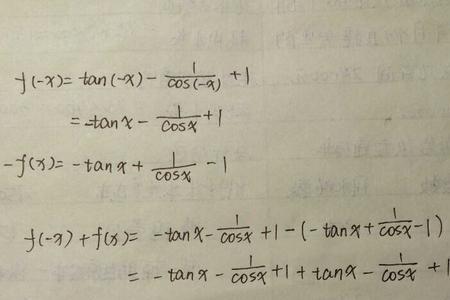 f(-x) = tan(-x) - 1/cos(-x) + 1
= -tanx - 1/cosx + 1
-f(x) = -tanx + 1/cosx - 1
f(-x) + f(x) = -tanx - 1/cosx + 1 - (-tanx + 1/cosx - 1)
= -tanx - 1/cosx + 1 + tanx - 1/cosx + 1